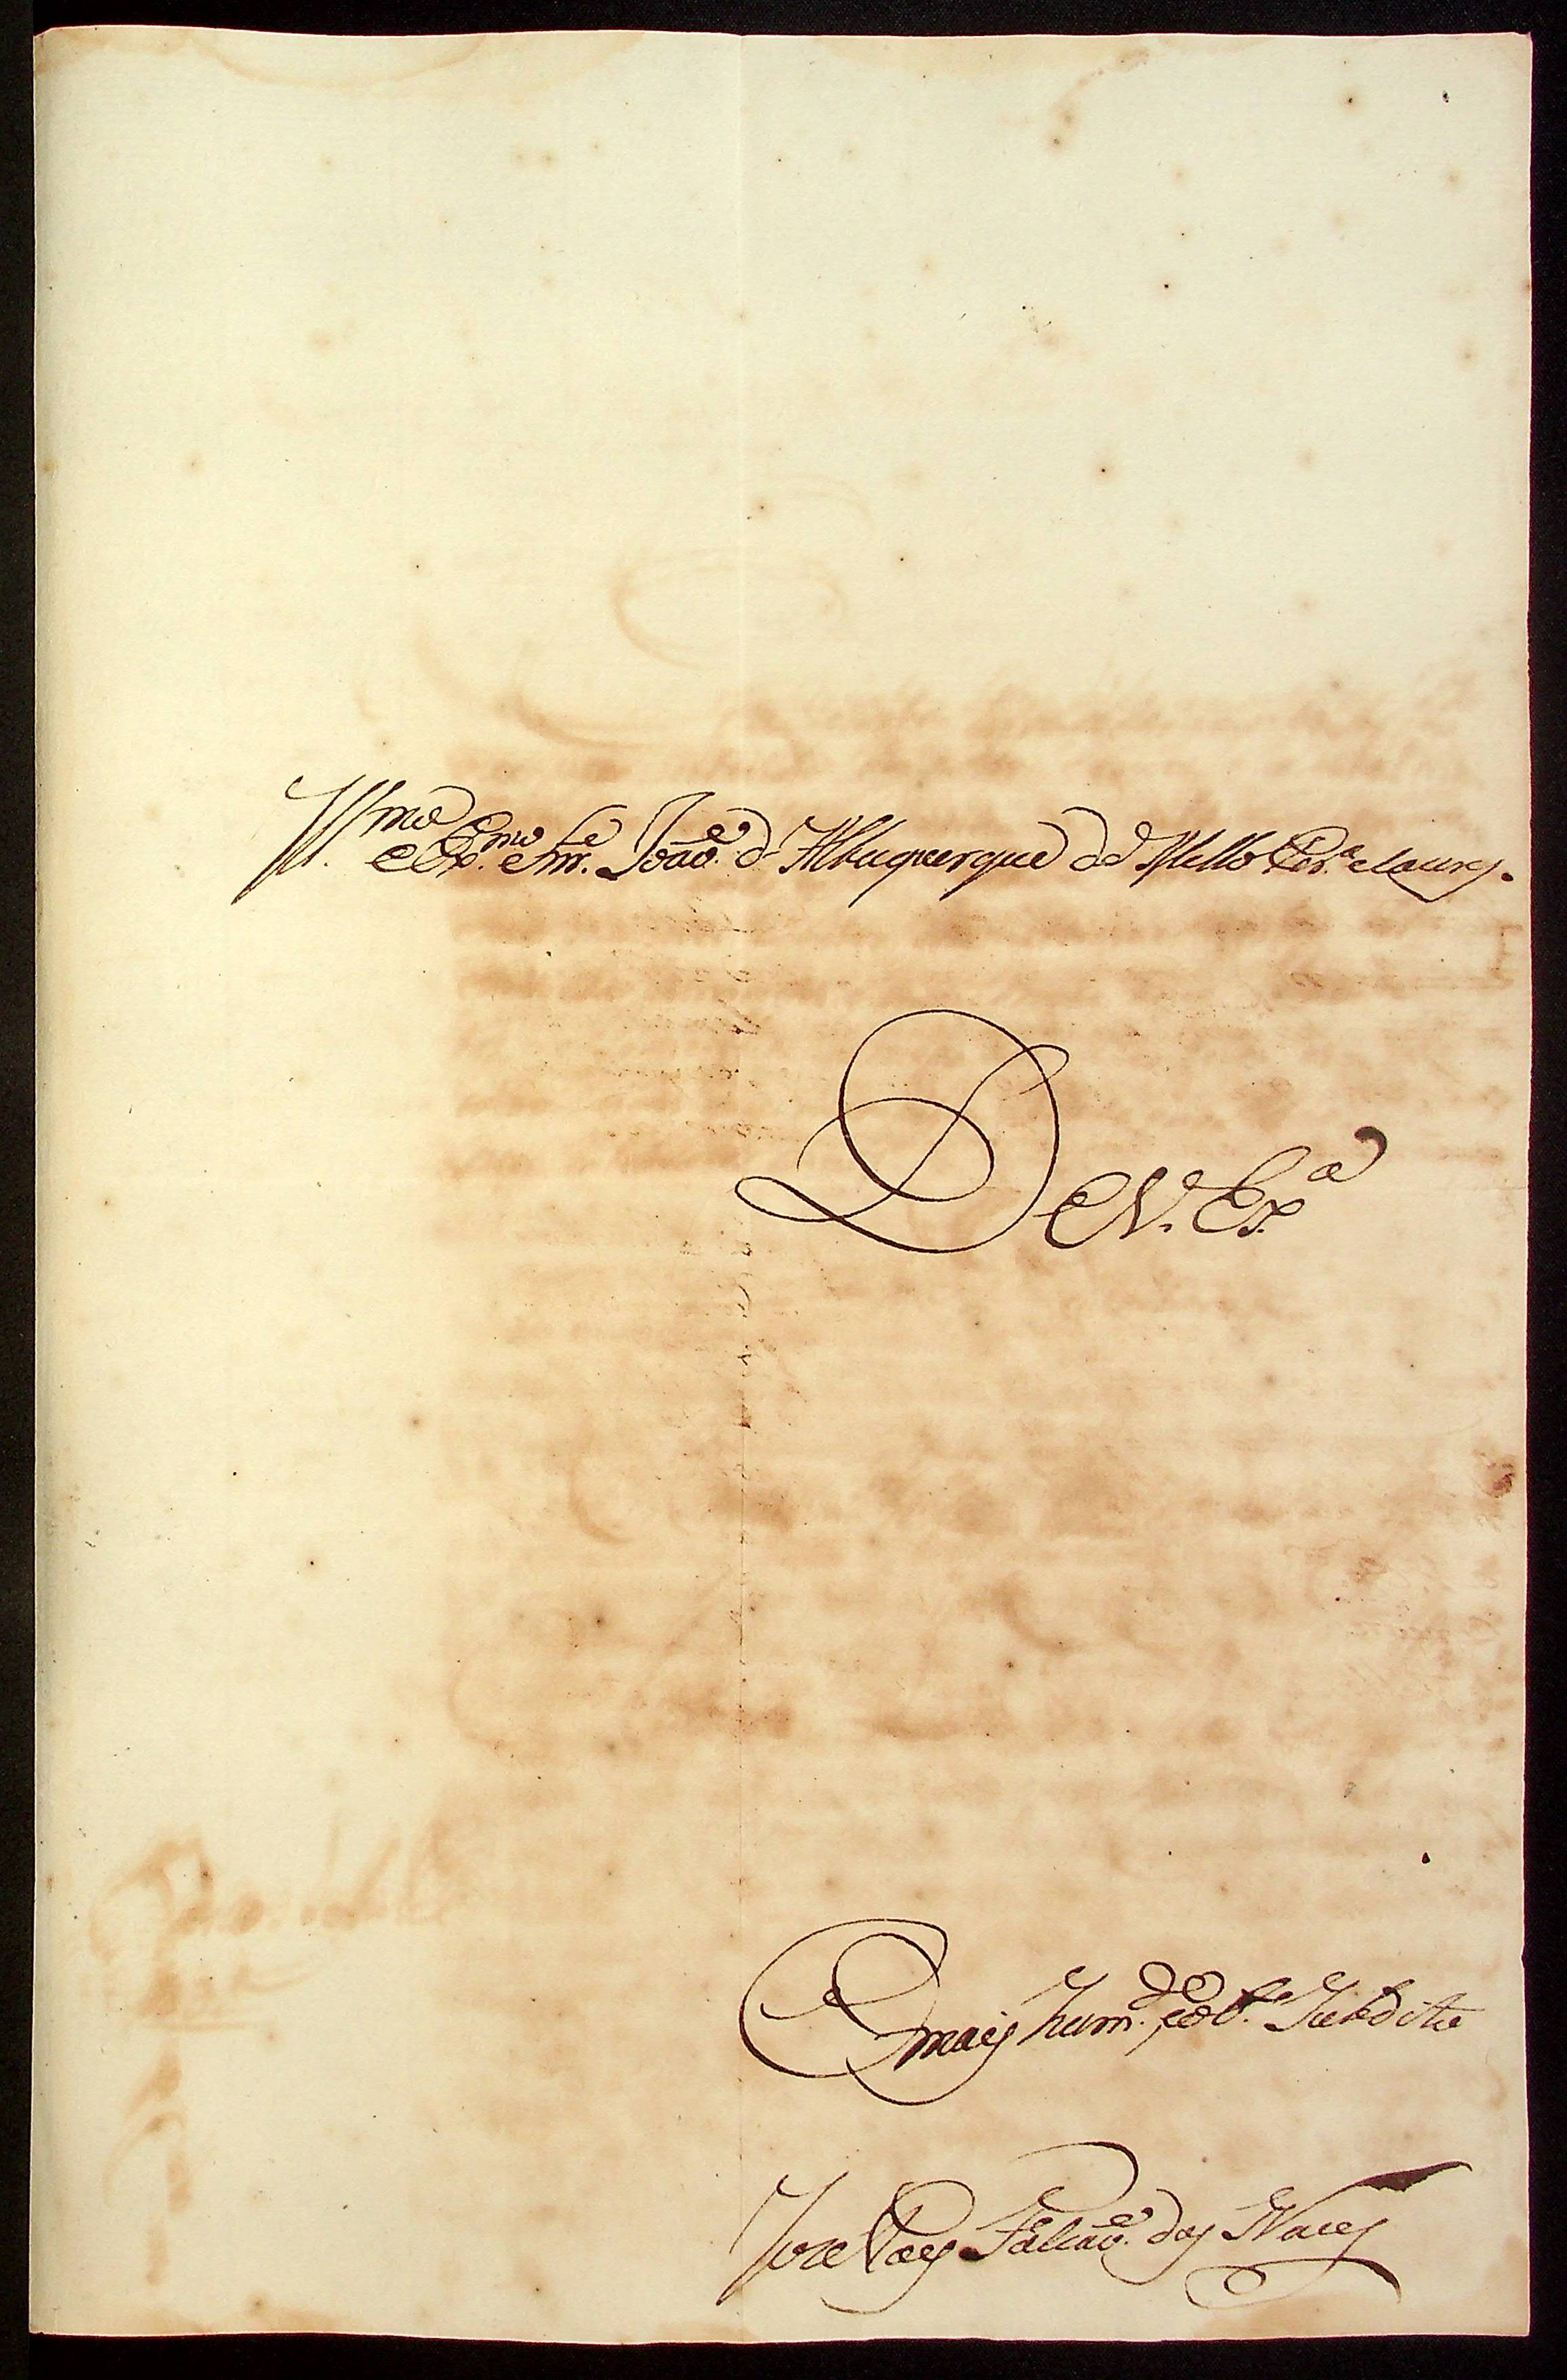 Ill.mo e Ex.mo Snr. João d'Albuquerque de Mello Per.a e Caceres.
De V. Ex.a
O mais hum.de e ob. Subdito
Joze Paes Falcão das Neves